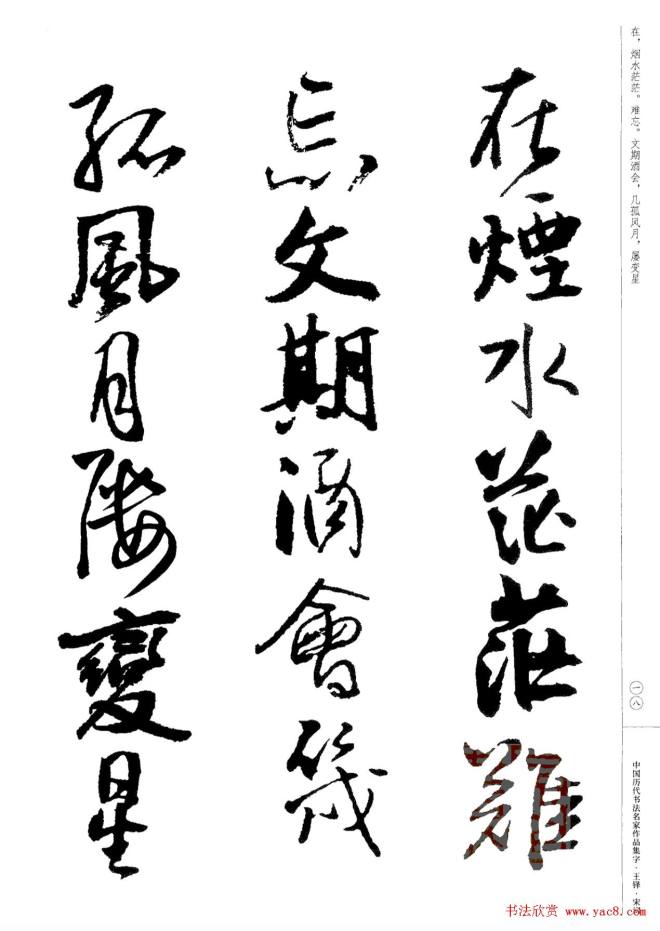 在，烟水茫茫。难忘。文期酒会，几孤风月，屡变星
在煙水茫茫難
忘文期酒會幾
孤風月屢變星
一八
中国历代书法名家作品集字·王铎·宋词
书法欣赏 www.yac8.com